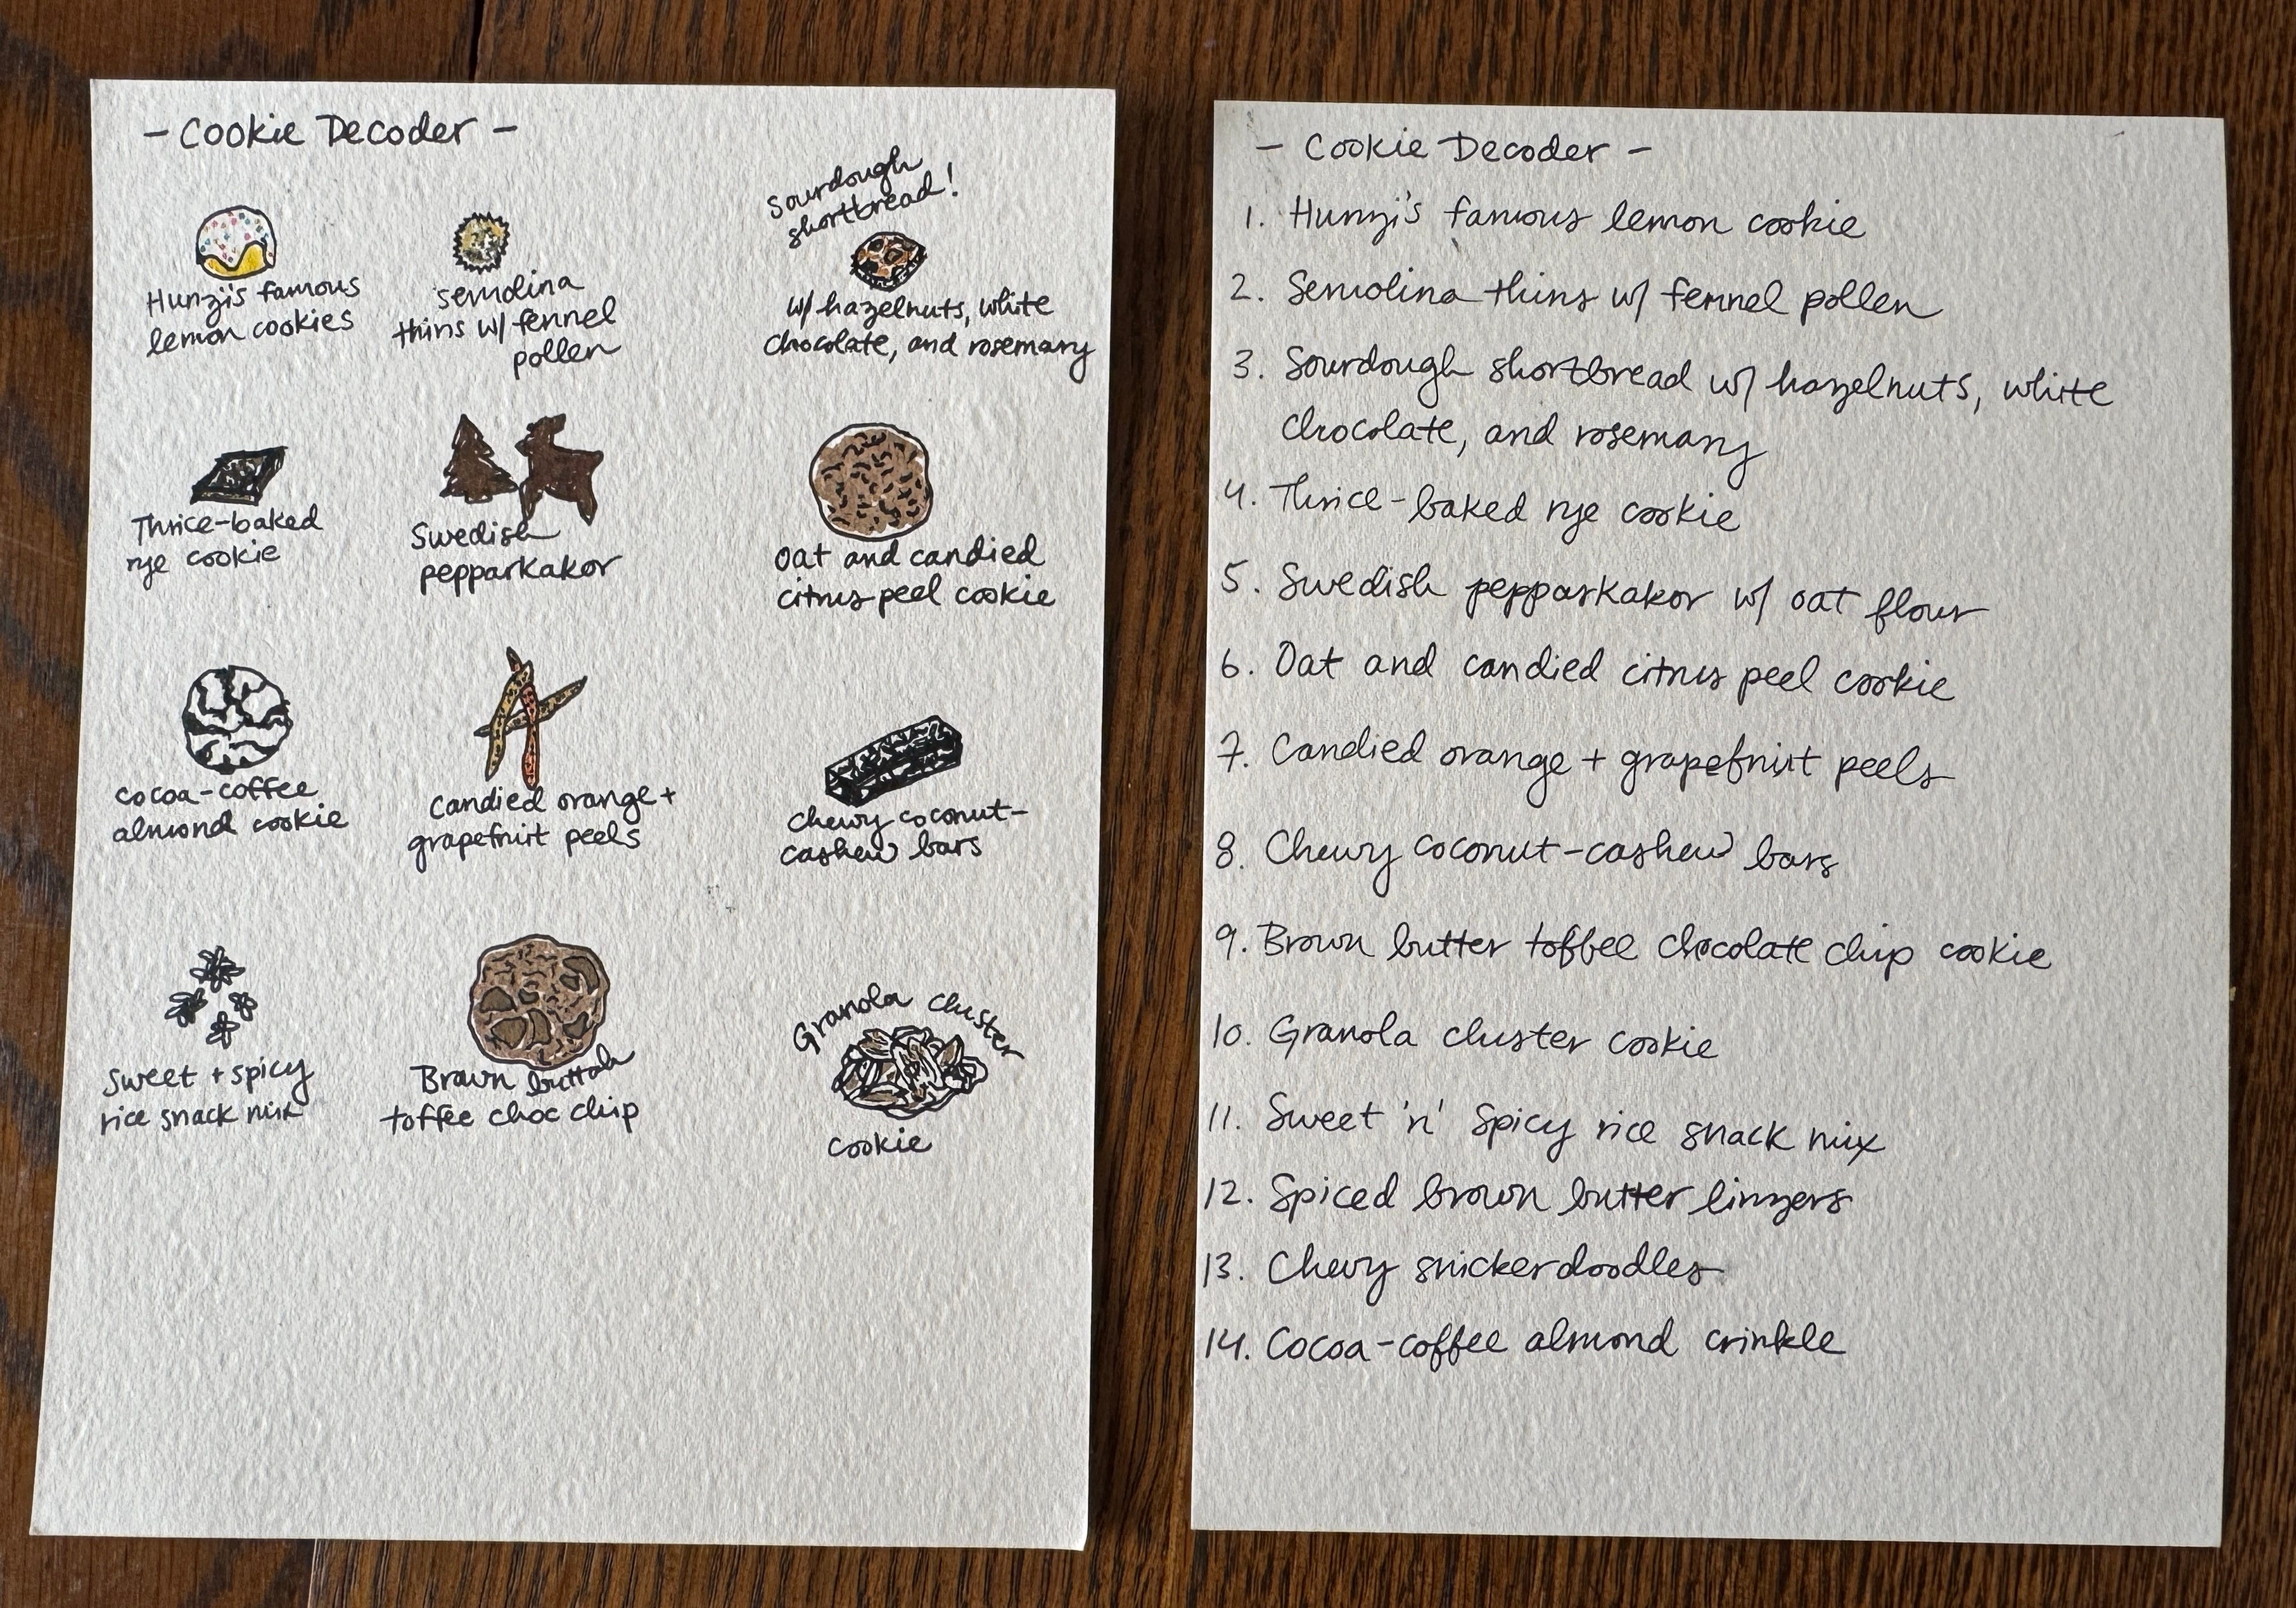 - Cookie Decoder -
Hunzi's famous
lemon cookies
semolina
thins w/ fennel
pollen
Sourdough
shortbread!
w/ hazelnuts, white
chocolate, and rosemary
Thrice-baked
rye cookie
Swedish
pepparkakor
Oat and candied
citrus peel cookie
cocoa-coffee
almond cookie
Candied orange +
grapefruit peels
Chewy coconut-
cashew bars
Sweet + spicy
rice snack mix
Brown buttah
toffee choc chip
Granola cluster
cookie
- Cookie Decoder -
1. Hunzi's famous lemon cookie
2. Semolina thins w/ fennel pollen
3. Sourdough shortbread w/ hazelnuts, white
chocolate, and rosemary
4. Thrice-baked rye cookie
5. Swedish pepparkakor w/ oat flour
6. Oat and candied citrus peel cookie
7. Candied orange + grapefruit peels
8. Chewy coconut-cashew bars
9. Brown butter toffee chocolate chip cookie
10. Granola cluster cookie
11. Sweet 'n' Spicy rice snack mix
12. Spiced brown butter linzers
13. Chewy snickerdoodles
14. Cocoa-coffee almond crinkle